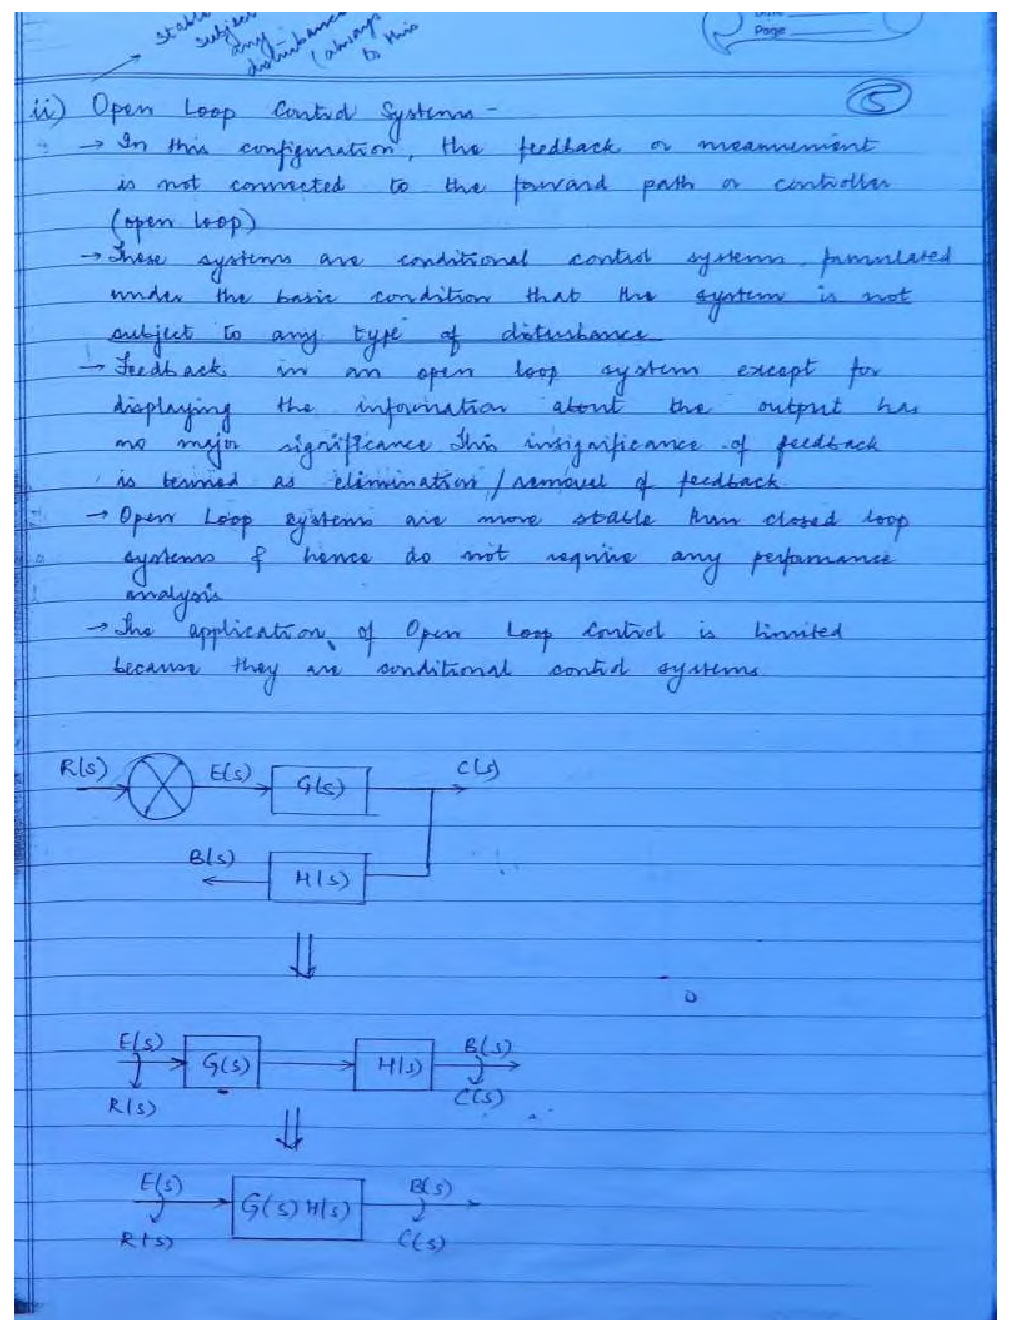 stable
subject
any
disturbance
(always
to this
Page
5
ii) Open Loop Control Systems -
→ In this configuration, the feedback or measurement
is not connected to the forward path or controller
(open loop)
→ These systems are conditional control systems formulated
under the basic condition that the system is not
subject to any type of disturbance
→ Feedback in an open loop system except for
displaying the information about the output has
no major significance This insignificance of feedback
is termed as elimination/removal of feedback
→ Open Loop systems are more stable than closed loop
systems & hence do not require any performance
analysis
→ The application of Open Loop Control is limited
because they are conditional control systems
R(s) E(s) G(s) C(s)
B(s) H(s)
⇓
E(s) G(s) H(s) B(s)
R(s) C(s)
⇓
E(s) G(s) H(s) B(s)
R(s) C(s)